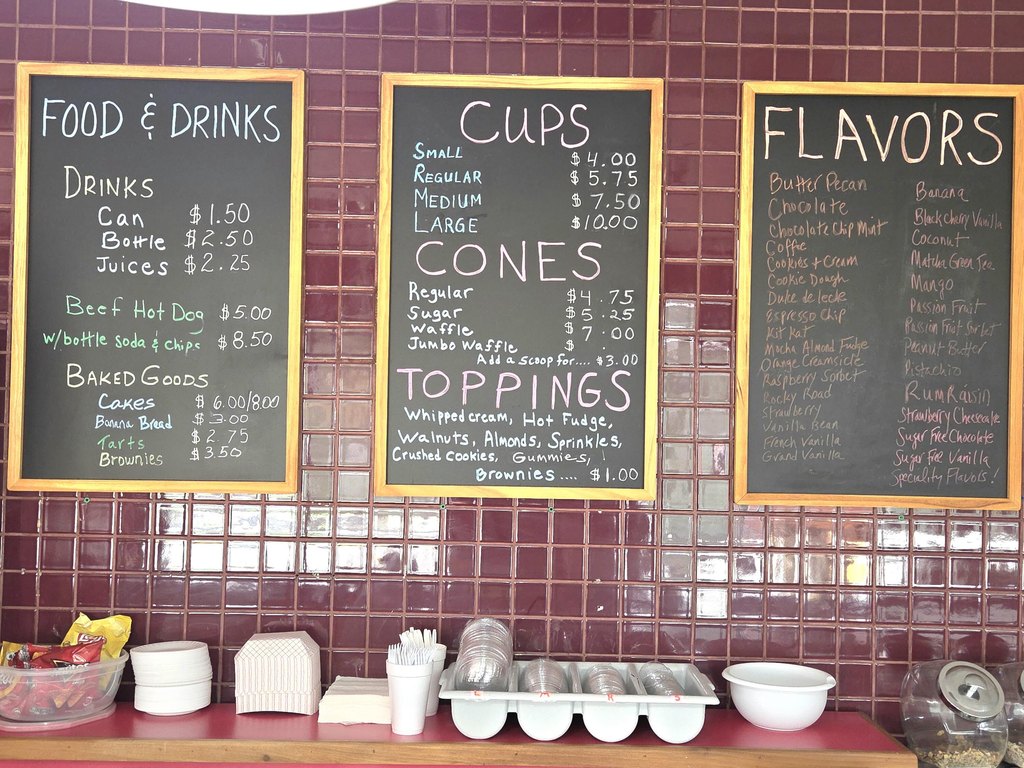 FOOD & DRINKS
DRINKS
Can $1.50
Bottle $2.50
Juices $2.25
Beef Hot Dog $5.00
w/bottle soda & chips $8.50
BAKED GOODS
CAKES $6.00/8.00
Banana Bread $3.00
Tarts $2.75
Brownies $3.50
CUPS
SMALL $4.00
REGULAR $5.75
MEDIUM $7.50
LARGE $10.00
CONES
Regular $4.75
Sugar $5.25
Waffle $7.00
Jumbo Waffle $ .
Add a scoop for.... $3.00
TOPPINGS
Whipped cream, Hot Fudge,
Walnuts, Almonds, Sprinkles,
Crushed Cookies, Gummies,
Brownies.... $1.00
FLAVORS
Butter Pecan
Chocolate
Chocolate Chip Mint
Coffee
Cookies + Cream
Cookie Dough
Dulce de leche
Espresso Chip
Kit Kat
Mocha Almond Fudge
Orange Creamsicle
Raspberry Sorbet
Rocky Road
Strawberry
Vanilla Bean
French Vanilla
Grand Vanilla
Banana
Black cherry Vanilla
Coconut
Matcha Green Tea
Mango
Passion Fruit
Passion Fruit Sorbet
Peanut Butter
Pistachio
Rum Raisin
Strawberry Cheesecake
Sugar Free Chocolate
Sugar Free Vanilla
Speciality Flavors!